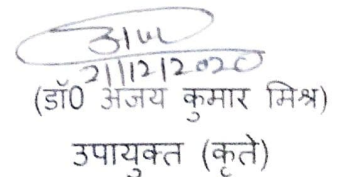 21/12/2020
(डॉ0 अजय कुमार मिश्र)
उपायुक्त (कृते)